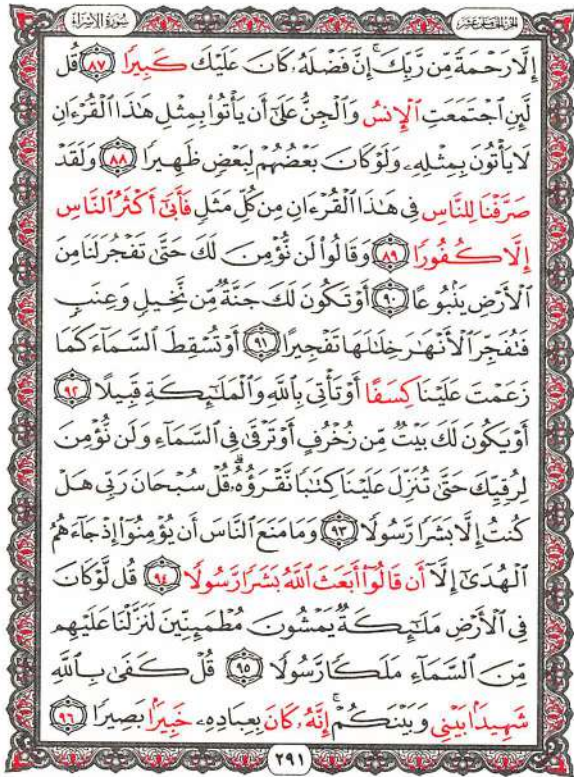 سورة الإسراء
الجزء الخامس عشر
إِلَّا رَحْمَةً مِّن رَّبِّكَ ۚ إِنَّ فَضْلَهُۥ كَانَ عَلَيْكَ كَبِيرًا ٨٧ قُل
لَّئِنِ ٱجْتَمَعَتِ ٱلْإِنسُ وَٱلْجِنُّ عَلَىٰٓ أَن يَأْتُوا۟ بِمِثْلِ هَـٰذَا ٱلْقُرْءَانِ
لَا يَأْتُونَ بِمِثْلِهِۦ وَلَوْ كَانَ بَعْضُهُمْ لِبَعْضٍ ظَهِيرًا ٨٨ وَلَقَدْ
صَرَّفْنَا لِلنَّاسِ فِى هَـٰذَا ٱلْقُرْءَانِ مِن كُلِّ مَثَلٍ فَأَبَىٰٓ أَكْثَرُ ٱلنَّاسِ
إِلَّا كُفُورًا ٨٩ وَقَالُوا۟ لَن نُّؤْمِنَ لَكَ حَتَّىٰ تَفْجُرَ لَنَا مِنَ
ٱلْأَرْضِ يَنۢبُوعًا ٩٠ أَوْ تَكُونَ لَكَ جَنَّةٌ مِّن نَّخِيلٍ وَعِنَبٍ
فَتُفَجِّرَ ٱلْأَنْهَـٰرَ خِلَـٰلَهَا تَفْجِيرًا ٩١ أَوْ تُسْقِطَ ٱلسَّمَآءَ كَمَا
زَعَمْتَ عَلَيْنَا كِسَفًا أَوْ تَأْتِىَ بِٱللَّهِ وَٱلْمَلَـٰٓئِكَةِ قَبِيلًا ٩٢
أَوْ يَكُونَ لَكَ بَيْتٌ مِّن زُخْرُفٍ أَوْ تَرْقَىٰ فِى ٱلسَّمَآءِ وَلَن نُّؤْمِنَ
لِرُقِيِّكَ حَتَّىٰ تُنَزِّلَ عَلَيْنَا كِتَـٰبًا نَّقْرَؤُهُۥ ۗ قُلْ سُبْحَانَ رَبِّى هَلْ
كُنتُ إِلَّا بَشَرًا رَّسُولًا ٩٣ وَمَا مَنَعَ ٱلنَّاسَ أَن يُؤْمِنُوٓا۟ إِذْ جَآءَهُمُ
ٱلْهُدَىٰٓ إِلَّآ أَن قَالُوٓا۟ أَبَعَثَ ٱللَّهُ بَشَرًا رَّسُولًا ٩٤ قُل لَّوْ كَانَ
فِى ٱلْأَرْضِ مَلَـٰٓئِكَةٌ يَمْشُونَ مُطْمَئِنِّينَ لَنَزَّلْنَا عَلَيْهِم
مِّنَ ٱلسَّمَآءِ مَلَكًا رَّسُولًا ٩٥ قُلْ كَفَىٰ بِٱللَّهِ
شَهِيدًۢا بَيْنِى وَبَيْنَكُمْ ۚ إِنَّهُۥ كَانَ بِعِبَادِهِۦ خَبِيرًۢا بَصِيرًا ٩٦
٢٩١